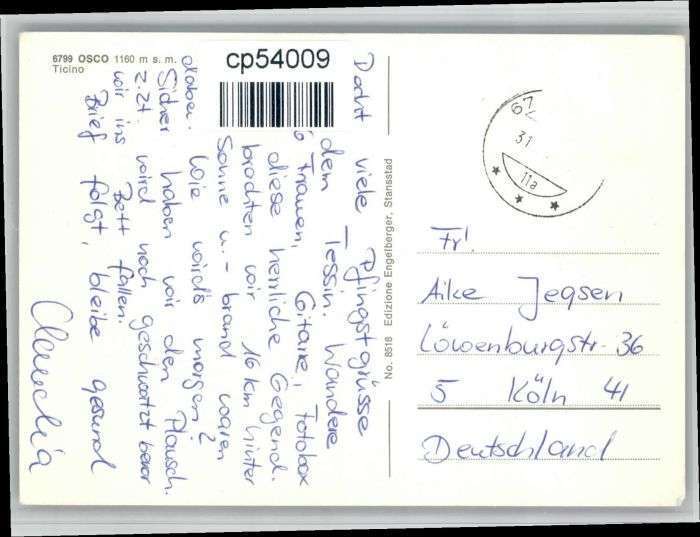 6799 OSCO 1160 m s. m.
Ticino
cp54009
viele Pfingstgrüsse
dem Tessin. Wandere
6 Frauen, Gitarre, Fotobox
diese herrliche Gegend.
brachten wir 16 km hinter
Sonne u. - brand waren
dabei. Wie wird's morgen?
Sicher haben wir den Plausch.
z.Zt. wird noch geschwatzt bevor
wir ins Bett fallen.
Brief folgt, bleibe gesund
Claudia
No. 8518 Edizione Engelberger, Stansstad
67
31
11a
Frl.
Aike Jegsen
Löwenburgstr. 36
5 Köln 41
Deutschland